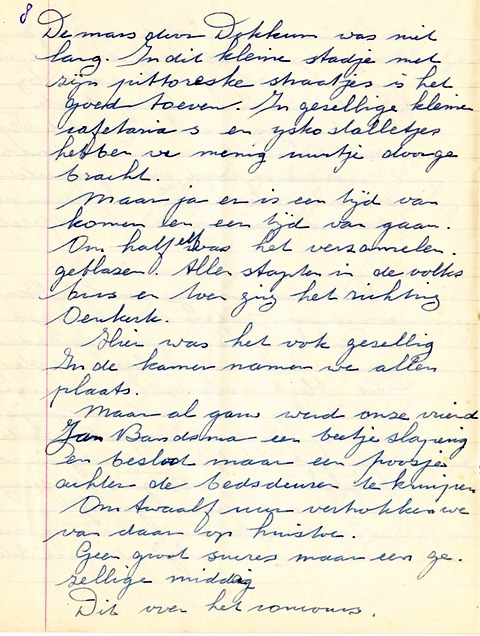 8
De mars door Dokkum was niet
lang. In dit kleine stadje met
zijn pittoreske straatjes is het
goed toeven. In gesellige kleine
cafetaria s en ysko stalletjes
hebben we menig uurtje doorge
bracht.
Maar ja er is een tijd van
komen en een tijd van gaan.
Om half elf was het verzamelen
geblazen. Allen stapten in de volks
bus en toen ging het richting
Oenkerk.
Hier was het ook gesellig
In de kamer namen we allen
plaats.
Maar al gauw werd onze vriend
Jan Bandsma een beetje slaperig
en besloot maar een poosje
achter de bedsdeuren te kruipen
Om twaalf uur vertrokken we
van daar op huistoe.
Geen groot succes maar een ge-
zellige middag
Dit over het concours.